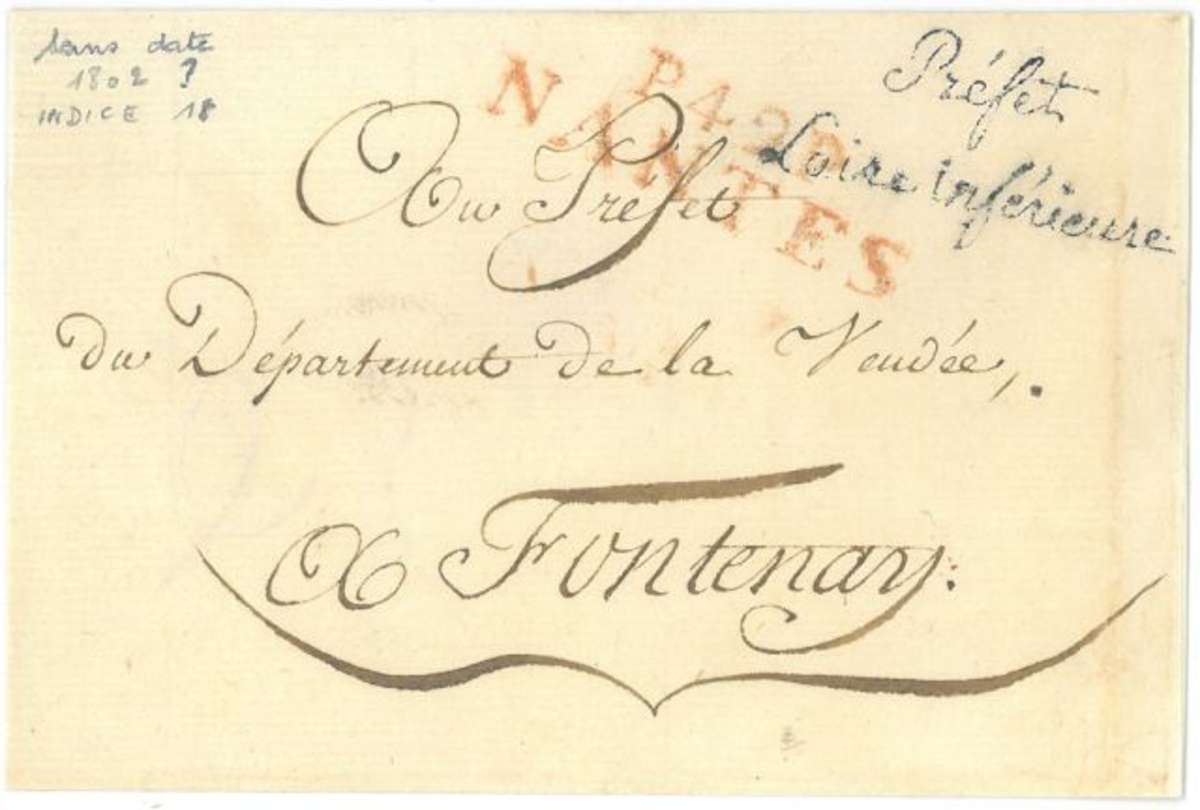 sans date
1802 ?
INDICE 18
P.42.P.
NANTES
Préfet
Loire inférieure
Au Préfet
du Département de la Vendée,.
A Fontenay.